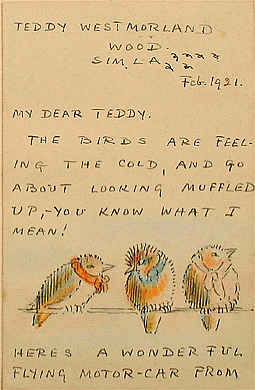 TEDDY WESTMORLAND
WOOD.
SIMLA
Feb. 1921.
MY DEAR TEDDY.
THE BIRDS ARE FEEL-
ING THE COLD, AND GO
ABOUT LOOKING MUFFLED
UP,-YOU KNOW WHAT I
MEAN!
HERES A WONDERFUL
FLYING MOTOR-CAR FROM